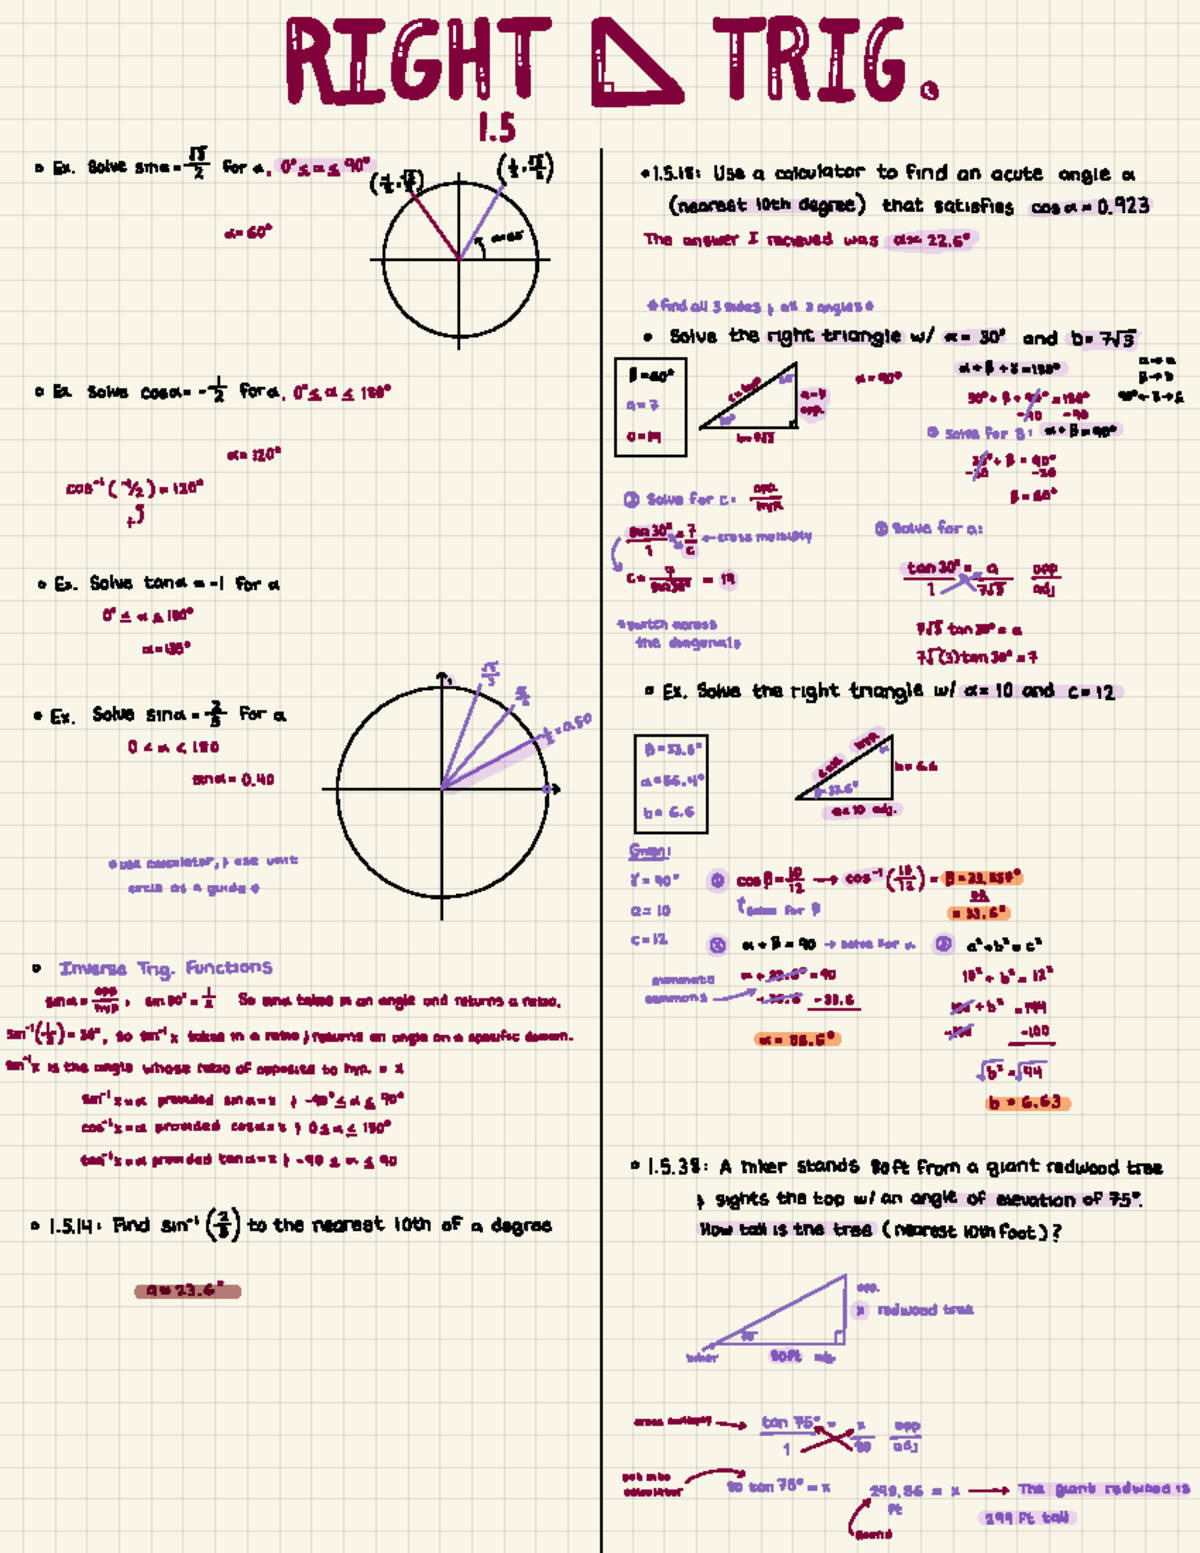 RIGHT TRIG.
1.5
Ex. Solve sinα = √3/2 for α, 0° ≤ α ≤ 90°
(-1/2, √3/2) (1/2, √3/2)
α = 60°
Ex. Solve cosα = -1/2 for α, 0° ≤ α ≤ 180°
α = 120°
cos⁻¹(-1/2) = 120°
Ex. Solve tanα = -1 for α
0° ≤ α ≤ 180°
α = 135°
Ex. Solve sinα = 2/5 for α
0 < α < 180
sinα = 0.40
1/2 = 0.50
*use calculator, & use unit
circle as a guide*
Inverse Trig. Functions
sinα = opp/hyp, sin 30° = 1/2 So sinα takes in an angle and returns a ratio.
sin⁻¹(1/2) = 30°, so sin⁻¹x takes in a ratio & returns an angle on a specific domain.
sin⁻¹x is the angle whose ratio of opposite to hyp. = x
sin⁻¹x = α provided sinα = x & -90° ≤ α ≤ 90°
cos⁻¹x = α provided cosα = x & 0 ≤ α ≤ 180°
tan⁻¹x = α provided tanα = x & -90 ≤ α ≤ 90
1.5.14: Find sin⁻¹(2/5) to the nearest 10th of a degree
α = 23.6°
1.5.18: Use a calculator to find an acute angle α
(nearest 10th degree) that satisfies cosα = 0.923
The answer I recieved was α ≈ 22.6°
*find all 3 sides & all 3 angles*
Solve the right triangle w/ α = 30° and b = 7√3
β = 60°
a = 7
c = 14
c = hyp
30°
a = 7
opp.
b = 7√3
α = 90°
α + β + γ = 180°
30° + β + 90° = 180°
-90 -90
① Solve for β: α + β = 90°
30° + β = 90°
-30 -30
β = 60°
③ Solve for c: opp./hyp.
sin 30°/1 = 7/c ← cross multiply
c = 7/sin30° = 14
*switch across
the diagonals
② Solve for a:
tan 30°/1 = a/7√3 opp/adj
7√3 tan 30° = a
7√(3) tan 30° = 7
Ex. Solve the right triangle w/ a = 10 and c = 12
β = 33.6°
α = 56.4°
b = 6.6
c = 12 hyp.
β = 33.6°
b = 6.6
a = 10 adj.
Given:
γ = 90°
a = 10
c = 12
① cos β = 10/12 → cos⁻¹(10/12) = β = 33.557°
OR
= 33.6°
Solve for β
③ α + β = 90 → solve for α
α + 33.6° = 90
-33.6 -33.6
α = 56.6°
② a² + b² = c²
10² + b² = 12²
100 + b² = 144
-100 -100
√b² = √44
b = 6.63
1.5.38: A hiker stands 80ft from a giant redwood tree
& sights the top w/ an angle of elevation of 75°.
How tall is the tree (nearest 10th foot)?
opp.
x redwood tree
75°
hiker
80ft adj.
cross multiply → tan 75°/1 = x/80 opp/adj
put into
calculator
80 tan 75° = x
298.56 = x → The giant redwood is
ft
299 ft tall
Round